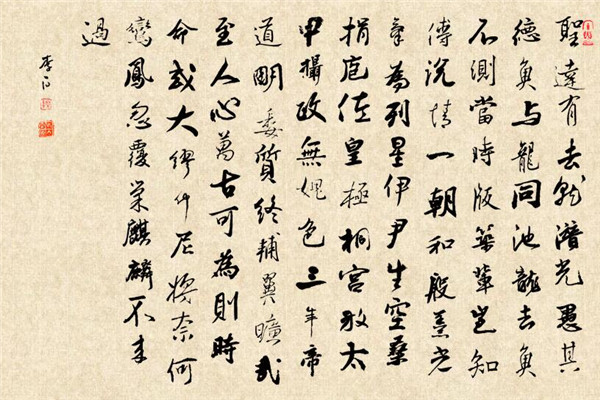 聖達有去就潛光愚其
德魚与龍同池龍去魚
不測當時版築輩豈知
傅說情一朝和殷羹光
氣為列星伊尹生空桑
捐庖佐皇極桐宮放太
甲攝政無愧色三年帝
道明委質終輔翼曠哉
至人心萬古可為則時
命或大繆仲尼將奈何
鸞鳳忽覆巢麒麟不来
過
李白